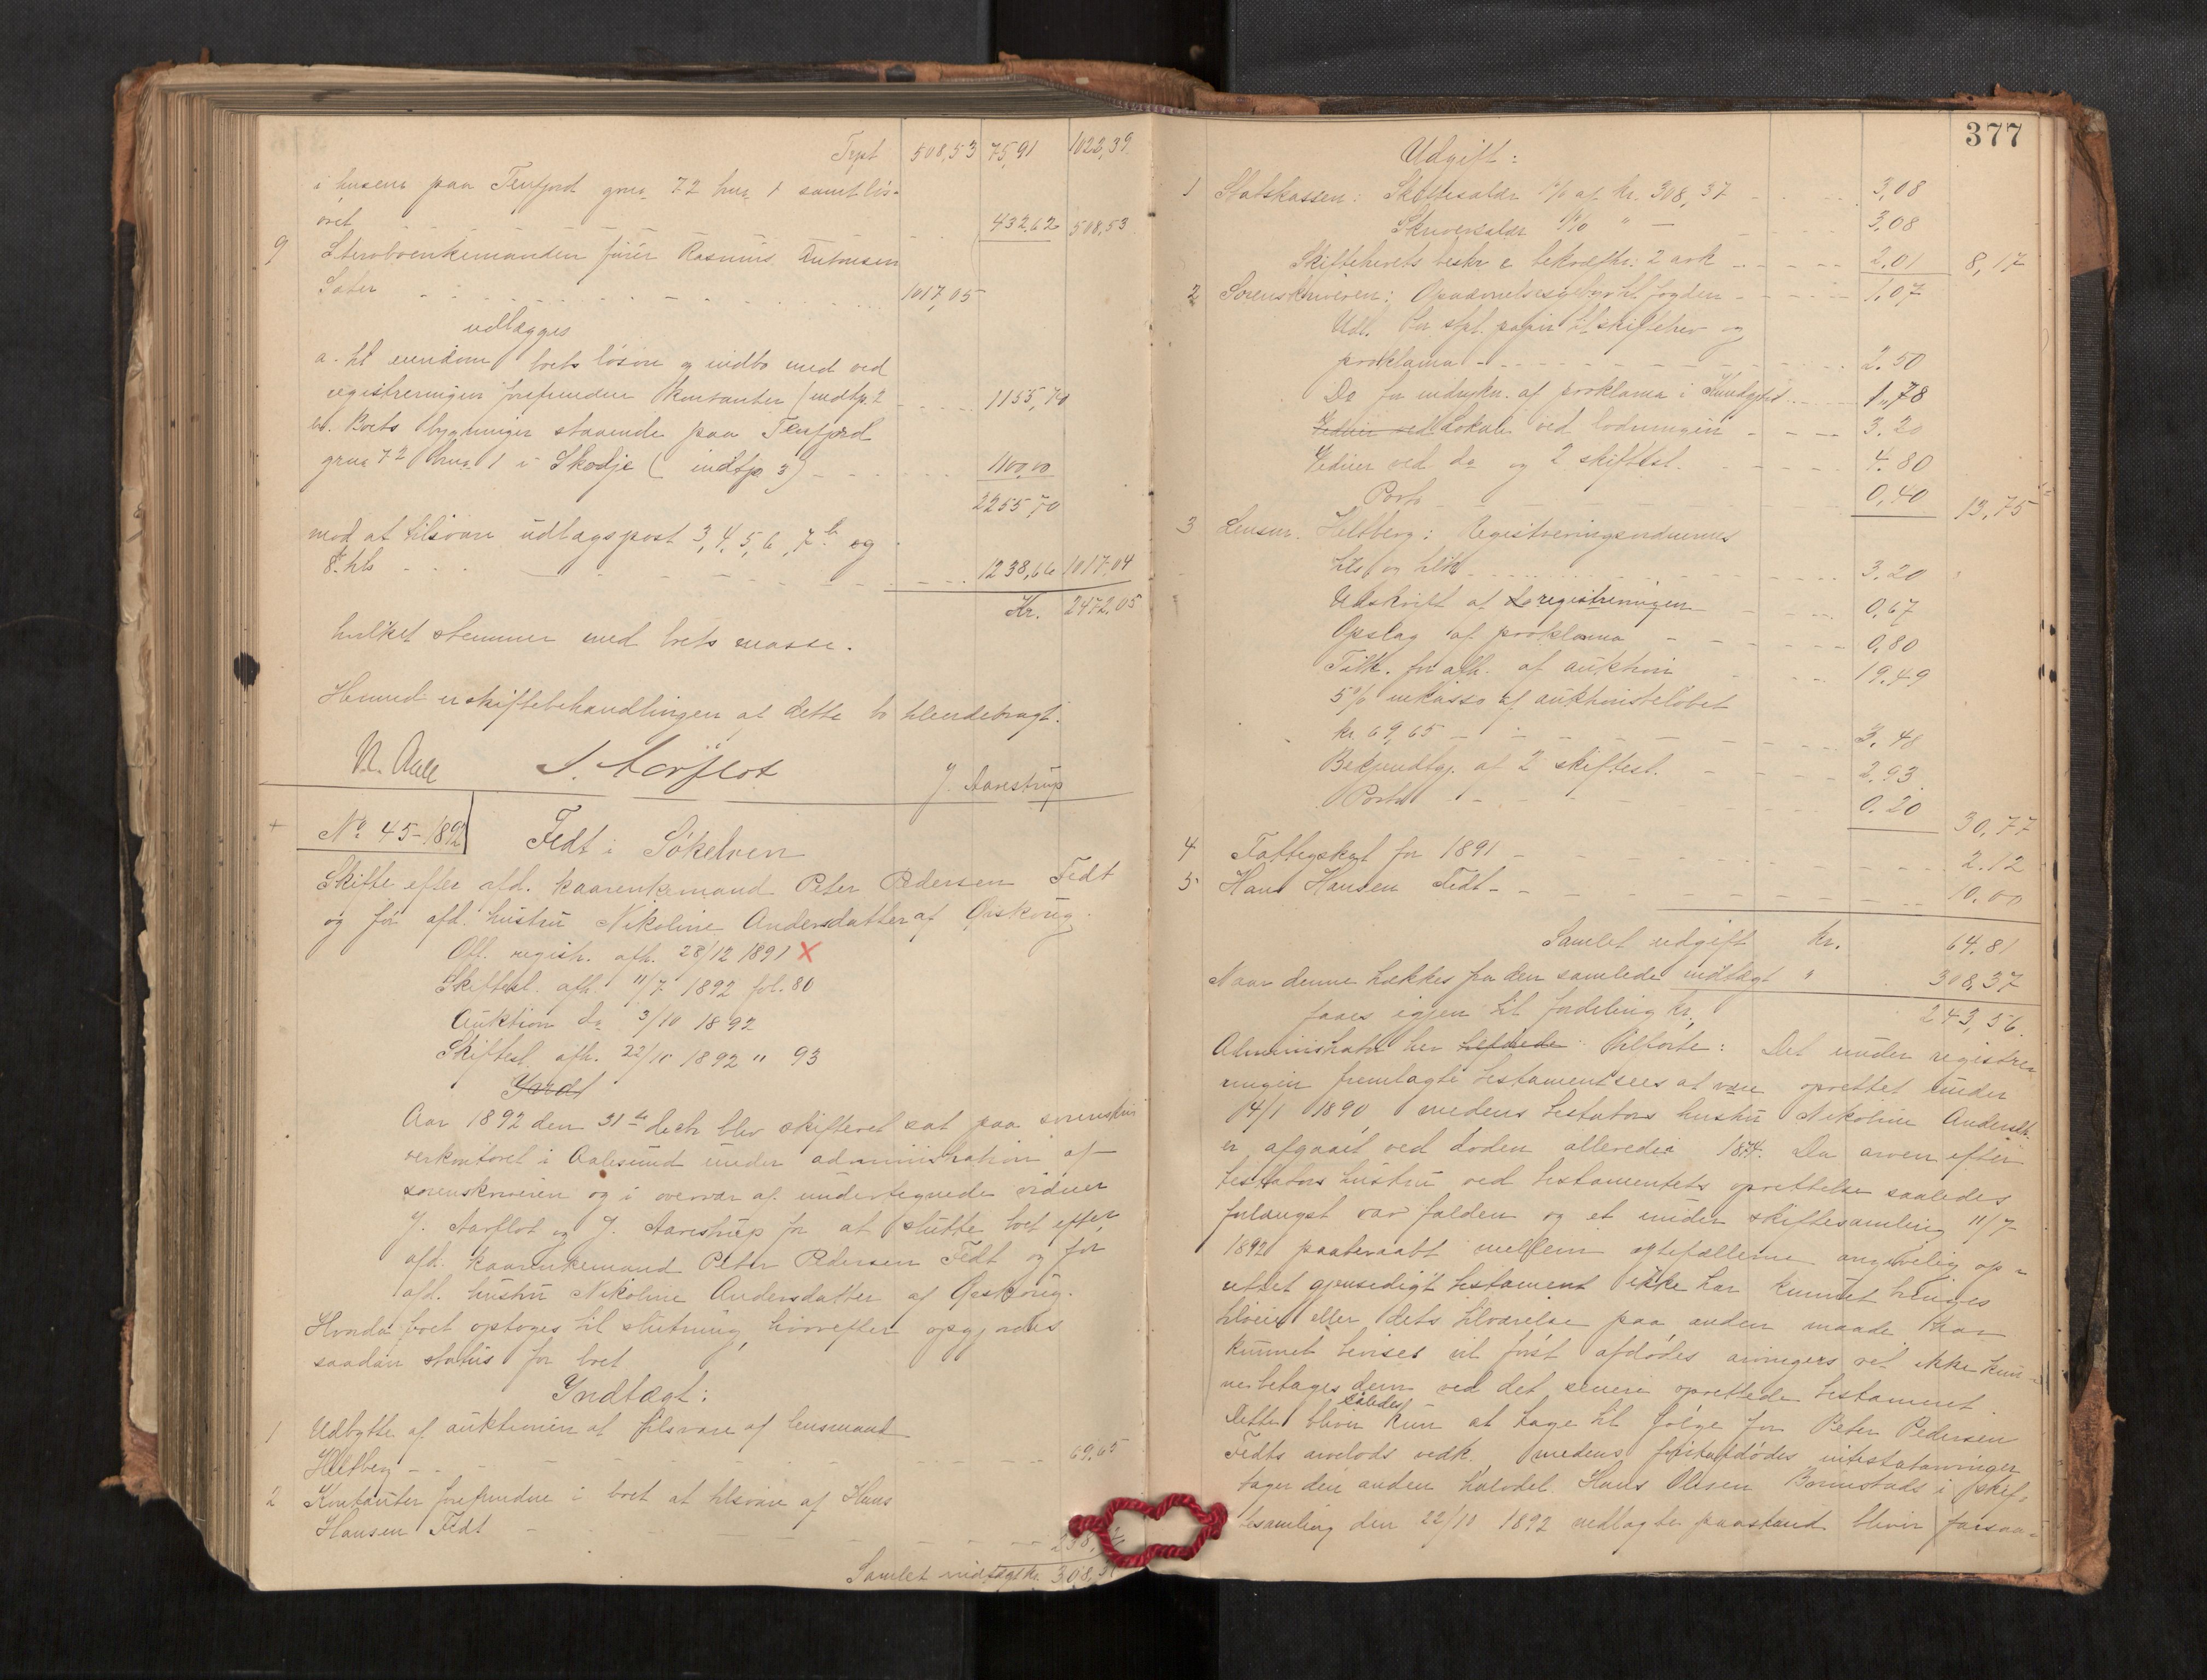 Trpt 508,53 75,91 1022,39
i husene paa Tenfjord grnr. 72 brnr. 1 samt løs-
øret 432,62 508,53
9 Stervboenkemanden furér Rasmus Antonsen
Sæter 1017,05
udlægges
a. til eiendom boets løsøre og indbo med ved
registreringen forefundne kontanter (indtp. 2 1155,70
b. Boets bygninger staaende paa Tenfjord
grnr 72 brnr. 1 i Skodje (indtp 3) 1100,00
2255,70
mod at tilsvare udlægspost 3, 4, 5, 6, 7 b og
8. tils 1238,66 1017,04
Kr. 2472,05
hvilket stemmer med boets masse.
Hermed er skiftebehandlingen af dette bo tilendebragt.
N. Aall J. Aarflot J. Aarestrup
No 45-1892 Fedt i Søkelven
Skifte efter afd. kaarenkemand Peter Pedersen Fedt
og før afd. hustru Nikoline Andersdatter af Ørskoug.
Off. registr. afh. 28/12 1891 X
Skiftesl. afh. 11/7 1892 fol. 80
Auktion do 3/10 1892
Skiftesl. afh. 22/10 1892 " 93
Aar 1892 den 31te decbr blev skifteret sat paa sorenskri
verkontoret i Aalesund under administration af
sorenskriveren og i overvær af undertegnede vidner
J. Aarflot og J. Aarestrup for at slutte boet efter
afd. kaarenkemand Peter Pedersen Fedt og før
afd. hustru Nikoline Andersdatter af Ørskoug.
Hvorda boet optoges til slutning, hvorefter opgjordes
saadan status for boet
Indtægt:
1 Udbytte af auktionen at tilsvare af lensmand
Hellberg 69,65
2 Kontanter forefundne i boet at tilsvare af Hans
Hansen Fedt 238,
Samlet indtægt kr. 308,37
377
Udgift:
1 Statskassen: Skiftesalær 1% af kr. 308,37 3,08
Skriversalær 1% " 3,08
Skiftebrevets beskr. & bekræftn. 2 ark 2,01 8,17
2 Sorenskriveren: Opnævnelsesgebyr til fogden 1,07
Udl. for stpl. papir til skiftebrev og
proklama 2.50
Do for indrykn. af proklama i Kundgjød 1,78
Lokale ved lodningen 3.20
Vidner ved do og 2 skiftesl. 4.80
Porto 0,40 13,75
3 Lensm. Hellberg: Registreringsvidnernes
tils og tilh 3.20
Udskrift af registreringen 0,67
Opslag af proklama 0,80
Tilk. for afh. af auktion 19.49
5% inkasso af auktionsbeløbet
kr. 69,65 3,48
Bekjendtgj. af 2 skiftesl. 2,93
Porto 0.20 30,77
4 Fattigskat for 1891 2.12
5 Hans Hansen Fedt 10.00
Samlet udgift kr. 64.81
Naar denne trækkes fra den samlede indtægt " 308,37
haves igjen til fordeling kr. 243,56.
Administrator her tilførte: Det under registre-
ringen fremlagte testament sees at være oprettet under
14/1 1890, medens testators hustru Nikoline Andersdtr.
er afgaaet ved døden allerede i 1874. Da arven efter
testators hustru ved testamentets oprettelse saaledes
forlængst var falden og et under skiftesamling 11/7
1892 paaberaabt mellem ægtefællerne angivelig op-
rettet gjensidigt testament ikke har kunnet bringes
tilveie eller dets tilværelse paa anden maade har
kunnet bevises vil først afdødes arvingers ret ikke kun-
ne betages dem ved det senere oprettede testament.
Dette bliver saaledes kun at tage til følge for Peter Pedersen
Fedts arvelods vedk. medens førstafdødes intestatarvinger
tager den anden halvdel. Hans Olesen Brunstads i skif-
tesamling den 22/10 1892 nedlagte paastand bliver forsaa-